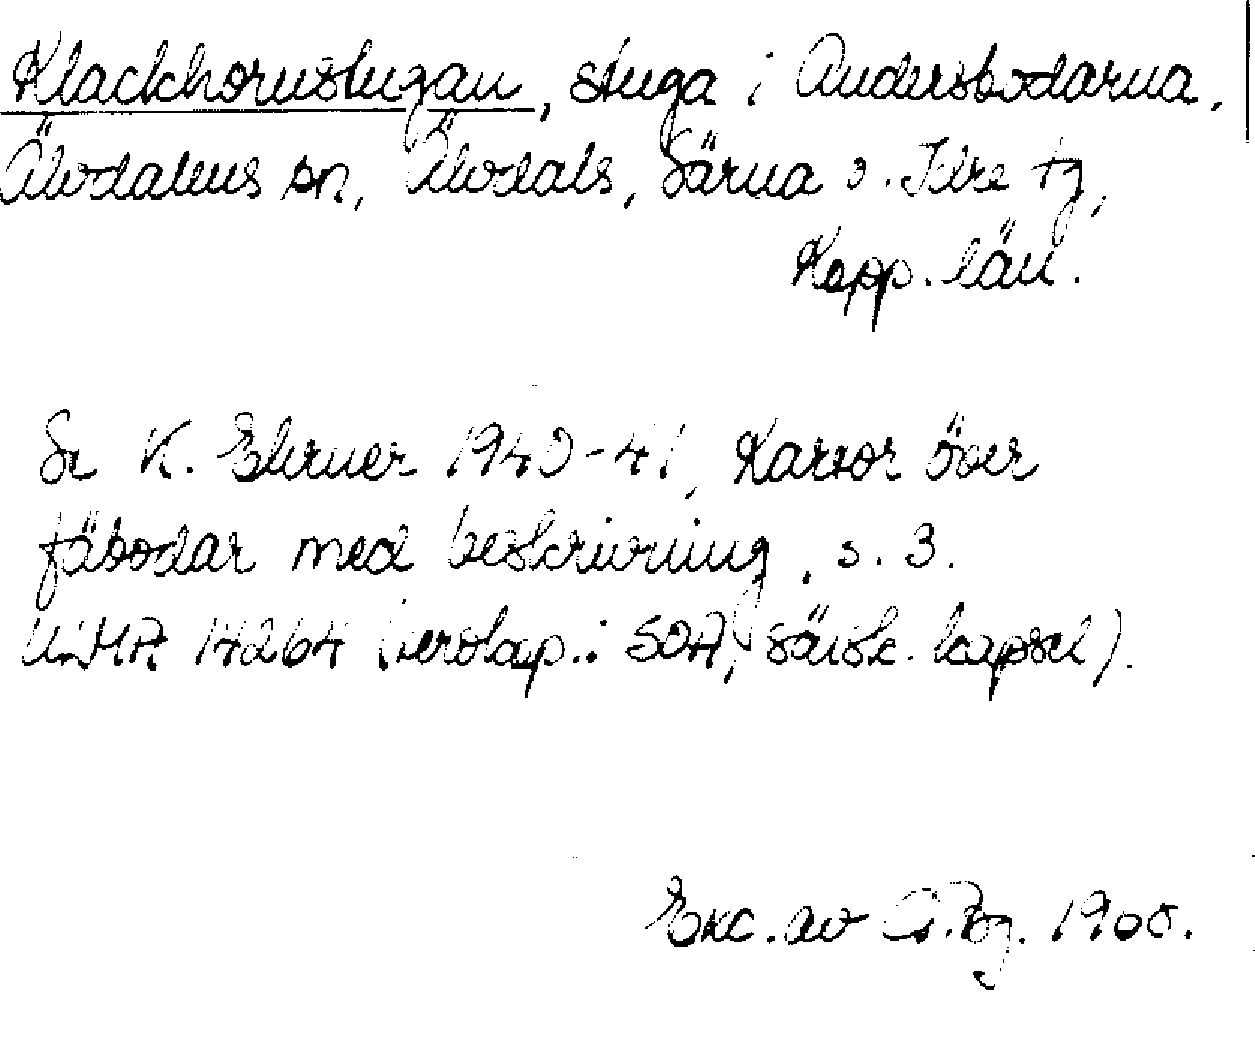 Klackhornstugan, stuga i Andersbodarna,
Älvdalens sn, Älvdals, Särna o. Idre tg,
Kopp. län.
Se K. Ehrner 1940-41, Kartor över
fäbodar med beskrivning, s. 3.
ULMA 14264 (avskap. i SOA, särsk. kapsel).
Exc. av G. Bg.